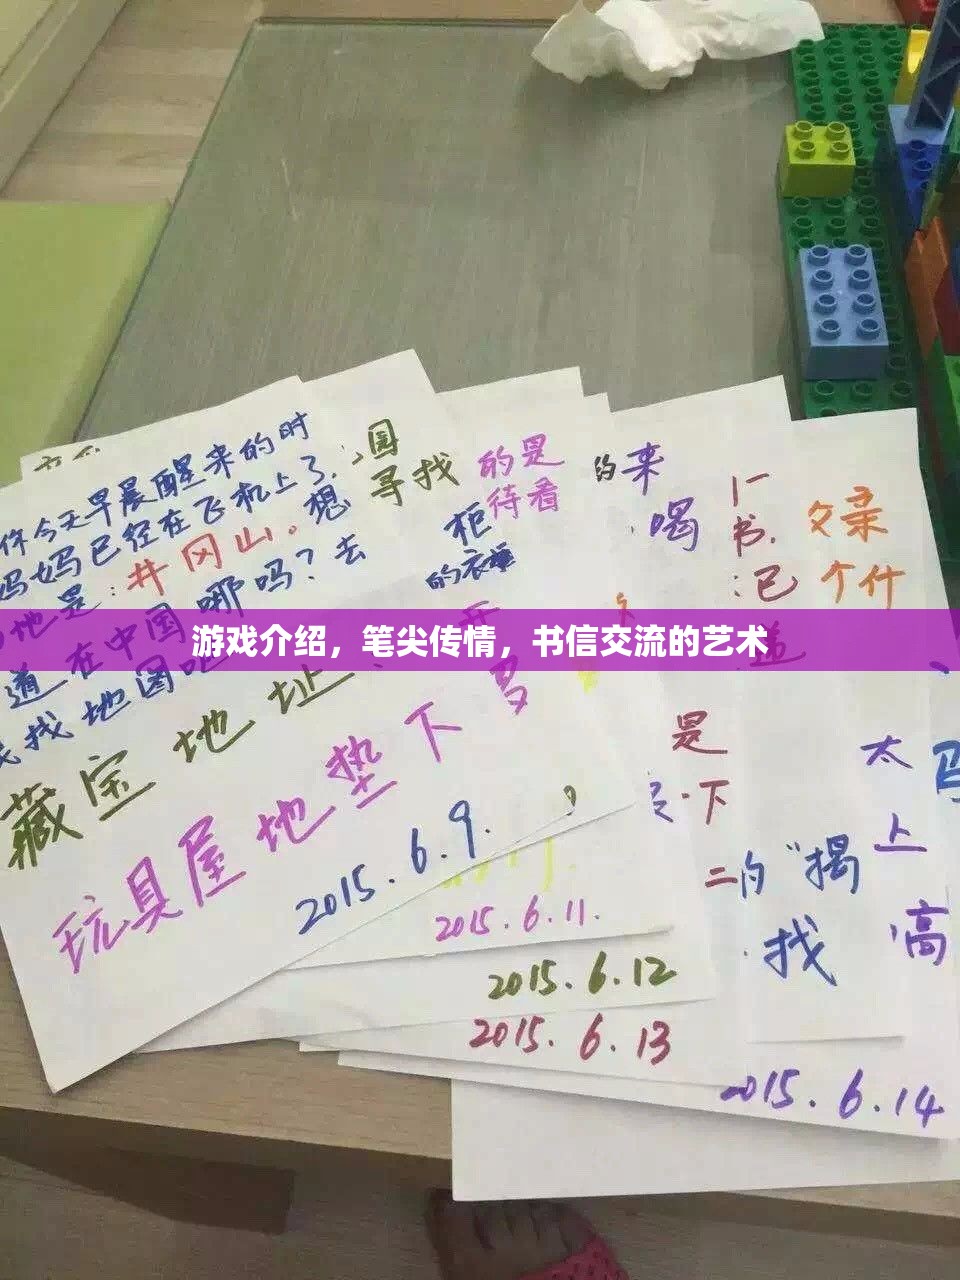 你今天早晨醒来的时
妈妈已经在飞机上了.
地是:井冈山。想
道在中国哪吗?去
找找地图吧
藏宝地址:
玩具屋地垫下
2015.6.9.
国
寻找
的是
待看
柜
的衣
开
多
2015.6.11.
2015.6.12
的来
喝
书.
:已
是
下
2015.6.13
个什
的"揭
找
太
上
高
2015.6.14
游戏介绍，笔尖传情，书信交流的艺术